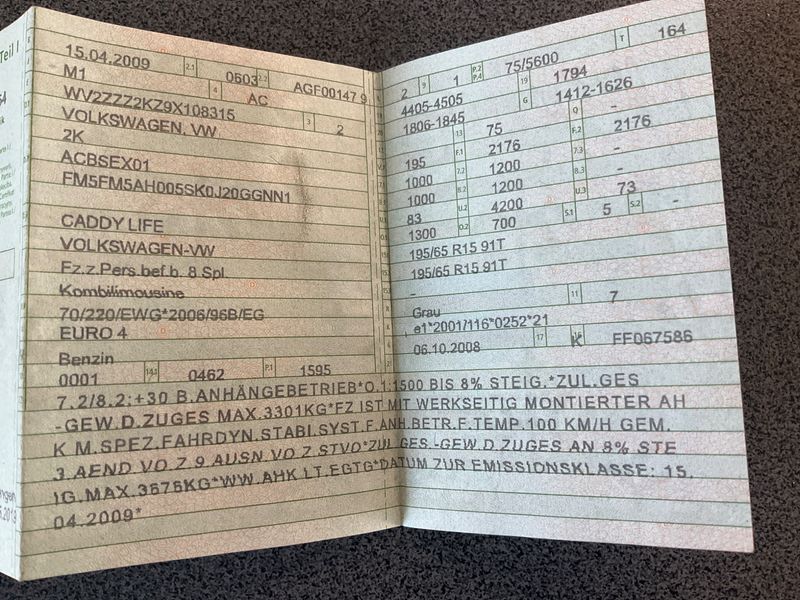 Teil I
15.04.2009 2.1 0603 2.2 AGF00147 9
M1 4 AC
WV2ZZZ2KZ9X108315 3 2
VOLKSWAGEN, VW
2K
ACBSEX01
FM5FM5AH005SK0J20GGNN1
CADDY LIFE
VOLKSWAGEN-VW
Fz.z.Pers.bef.b. 8 Spl
Kombilimousine
70/220/EWG*2006/96B/EG
EURO 4
Benzin
0001 14.1 0462 P.1 1595
2 9 1 P.2 P.4 75/5600 T 164
4405-4505 19 1794
1806-1845 G 1412-1626
13 75 Q -
195 F.1 2176 F.2 2176
1000 7.2 1200 7.3 -
1000 8.2 1200 8.3 -
83 U.2 4200 U.3 73
1300 O.2 700 S.1 5 S.2 -
195/65 R15 91T
195/65 R15 91T
-
Grau 11 7
e1*2001/116*0252*21
06.10.2008 17 K 16 FF067586
7.2/8.2:+30 B.ANHÄNGEBETRIEB*O.1:1500 BIS 8% STEIG.*ZUL.GES
-GEW.D.ZUGES MAX.3301KG*FZ IST MIT WERKSEITIG MONTIERTER AH
K M.SPEZ.FAHRDYN.STABI.SYST.F.ANH.BETR.F.TEMP.100 KM/H GEM.
3.AEND.VO.Z.9.AUSN.VO.Z.STVO*ZUL.GES.-GEW.D.ZUGES AN 8% STE
IG.MAX.3676KG*WW.AHK LT.EGTG*DATUM ZUR EMISSIONSKLASSE: 15.
04.2009*